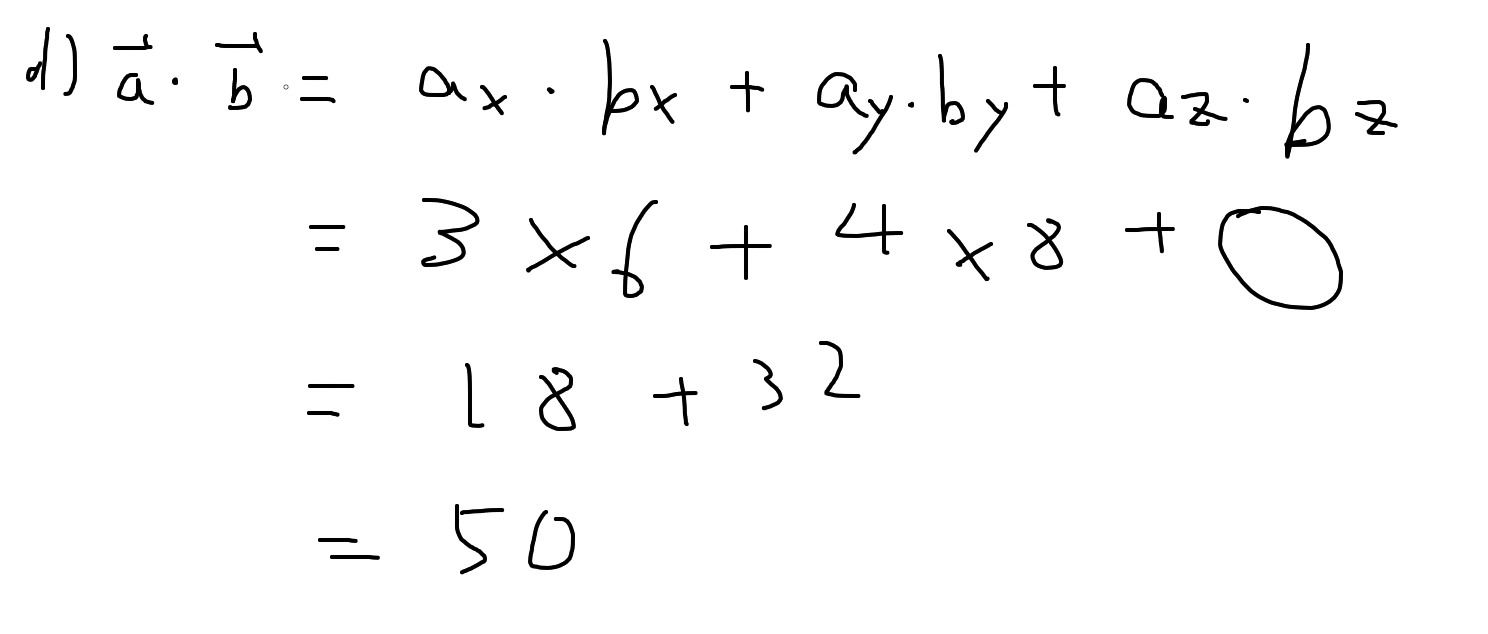 d) a⃗ · b⃗ = ax · bx + ay · by + az · bz
= 3 × 6 + 4 × 8 + 0
= 18 + 32
= 50